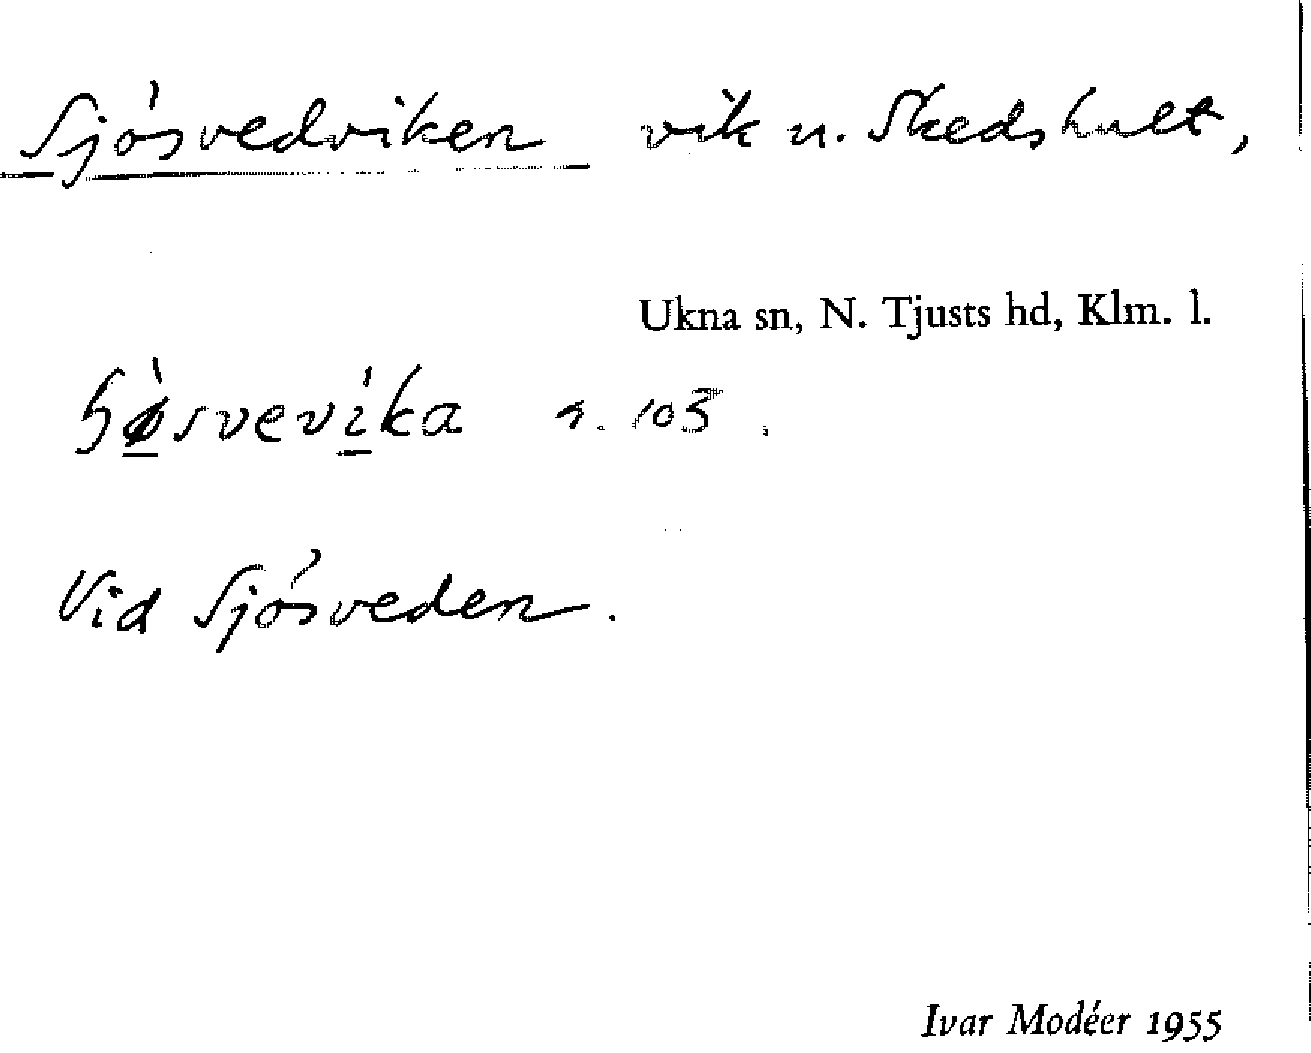 Sjösvedviken vik u. Skedshult,
Ukna sn, N. Tjusts hd, Klm. l.
103.
Vid Sjösveden.
Ivar Modéer 1955